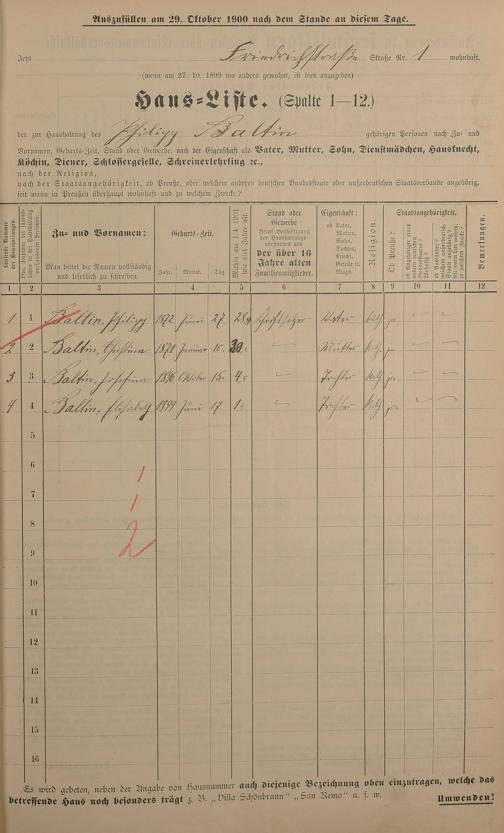 Auszufüllen am 29. Oktober 1900 nach dem Stande an diesem Tage.
Jetzt Friedrichstraße Straße Nr. 1 wohnhaft.
(wenn am 27. 10. 1899 wo anders gewohnt, ist dies anzugeben)
Haus-Liste. (Spalte 1—12.)
der zur Haushaltung des Philipp Baltin gehörigen Personen nach Zu- und
Vornamen, Geburts-Zeit, Stand oder Gewerbe, nach der Eigenschaft als Vater, Mutter, Sohn, Dienstmädchen, Hausknecht,
Köchin, Diener, Schlossergeselle, Schreinerlehrling ec.,
nach der Religion,
nach der Staatsangehörigkeit, ob Preuße, oder welchem anderen deutschen Bundesstaate oder außerdeutschen Staatsverbande angehörig,
seit wann in Preußen überhaupt wohnhaft und zu welchem Zwecke?
Zu- und Vornamen:
Man bittet die Namen vollständig
und leserlich zu schreiben.
Geburts-Zeit.
Jahr. Monat. Tag
Stand oder
Gewerbe
der über 16
Jahre alten
Familienmitglieder.
Eigenschaft:
ob Vater,
Mutter,
Sohn,
Tochter,
Knecht,
Geselle o.
Magd.
Religion.
Staatsangehörigkeit.
Ob Preuße?
Bemerkungen.
1 2 3 4 5 6 7 8 9 10 11 12
1 1 Baltin, Philipp 1872 Juni 27. 28 Vater Kath. ja
2 2 Baltin, Christina 1870 Januar 10. 30 Mutter Kath. ja
3 3 Baltin, Josefina 1896 Oktober 15. 4 Tochter Kath. ja
4 4 Baltin, Elisabeth 1899 Juni 17. 1 Tochter Kath. ja
5
6
7
8
9
10
11
12
13
14
15
16
1
1
2
Es wird gebeten, neben der Angabe von Hausnummer auch diejenige Bezeichnung oben einzutragen, welche das
betreffende Haus noch besonders trägt z. B. „Villa Schönbrunn" „San Remo" u. s. w. Umwenden!